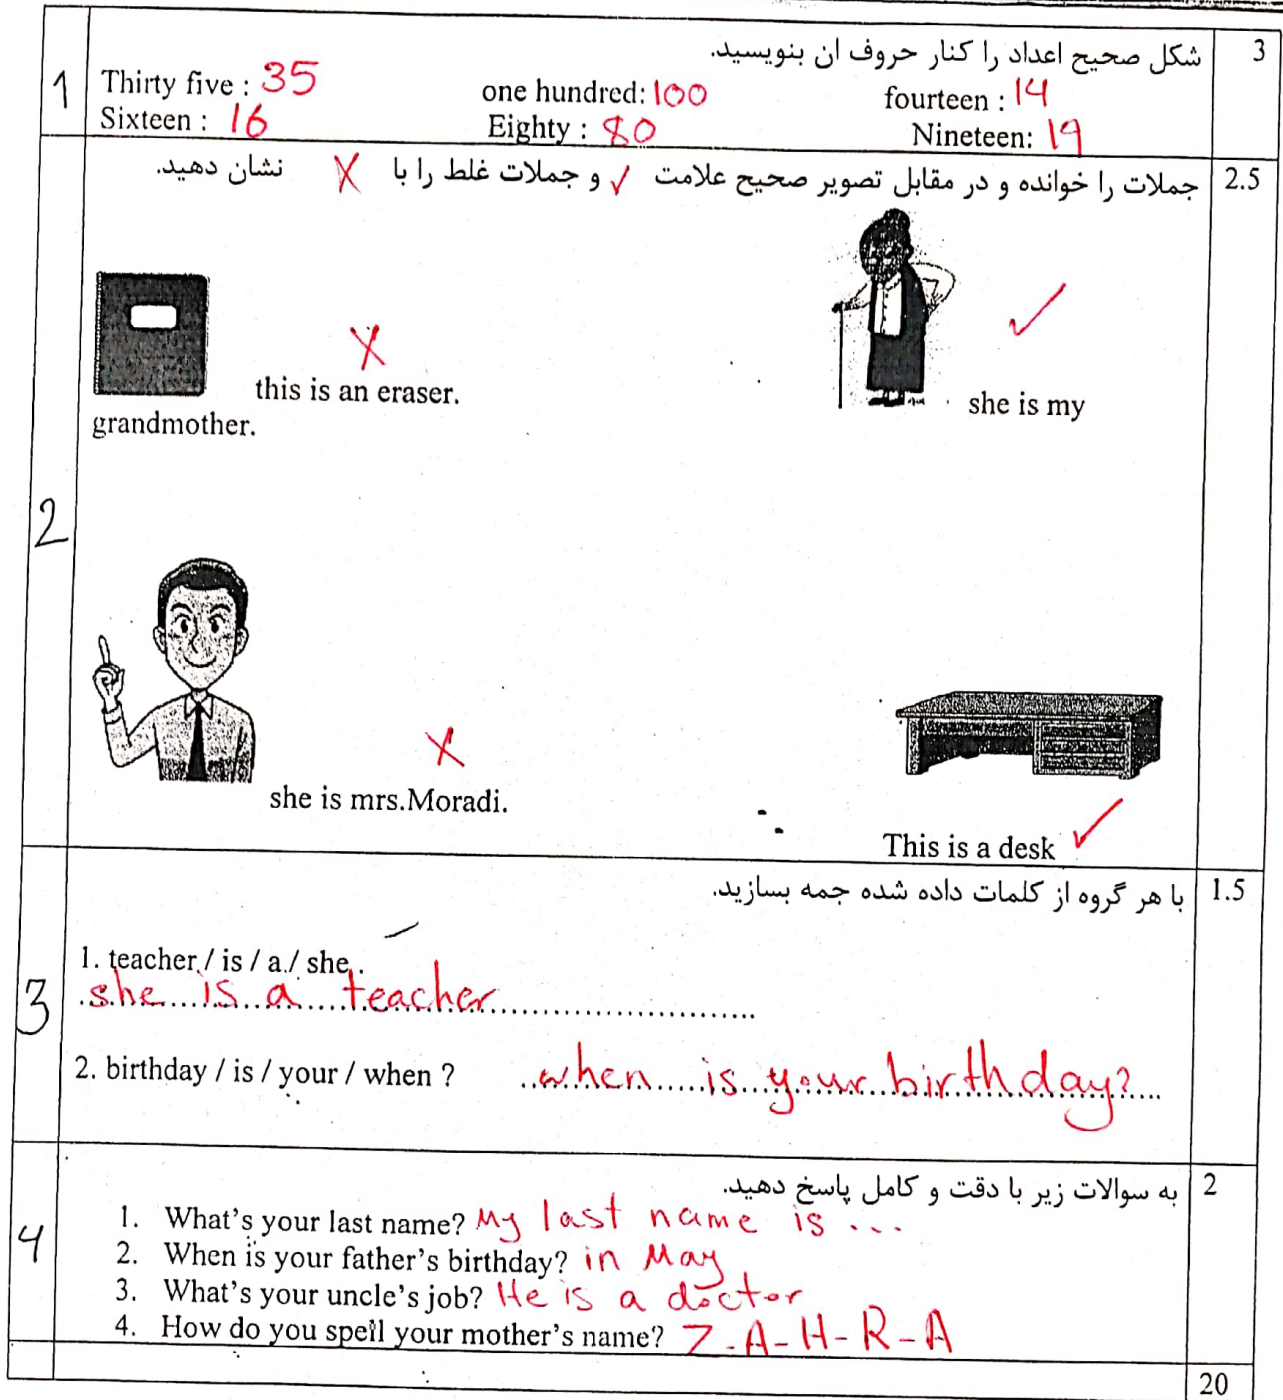 شکل صحیح اعداد را کنار حروف ان بنویسید. 3
1
Thirty five : 35 one hundred: 100 fourteen : 14
Sixteen : 16 Eighty : 80 Nineteen: 19
جملات را خوانده و در مقابل تصویر صحیح علامت ✓ و جملات غلط را با X نشان دهید. 2.5
X ✓
this is an eraser. she is my
grandmother.
2
X
she is mrs.Moradi.
This is a desk ✓
با هر گروه از کلمات داده شده جمه بسازید. 1.5
1. teacher / is / a / she .
3
she is a teacher
2. birthday / is / your / when ? when is your birthday?
به سوالات زیر با دقت و کامل پاسخ دهید. 2
4
1. What's your last name? My last name is ...
2. When is your father's birthday? in May
3. What's your uncle's job? He is a doctor
4. How do you spell your mother's name? Z-A-H-R-A
20